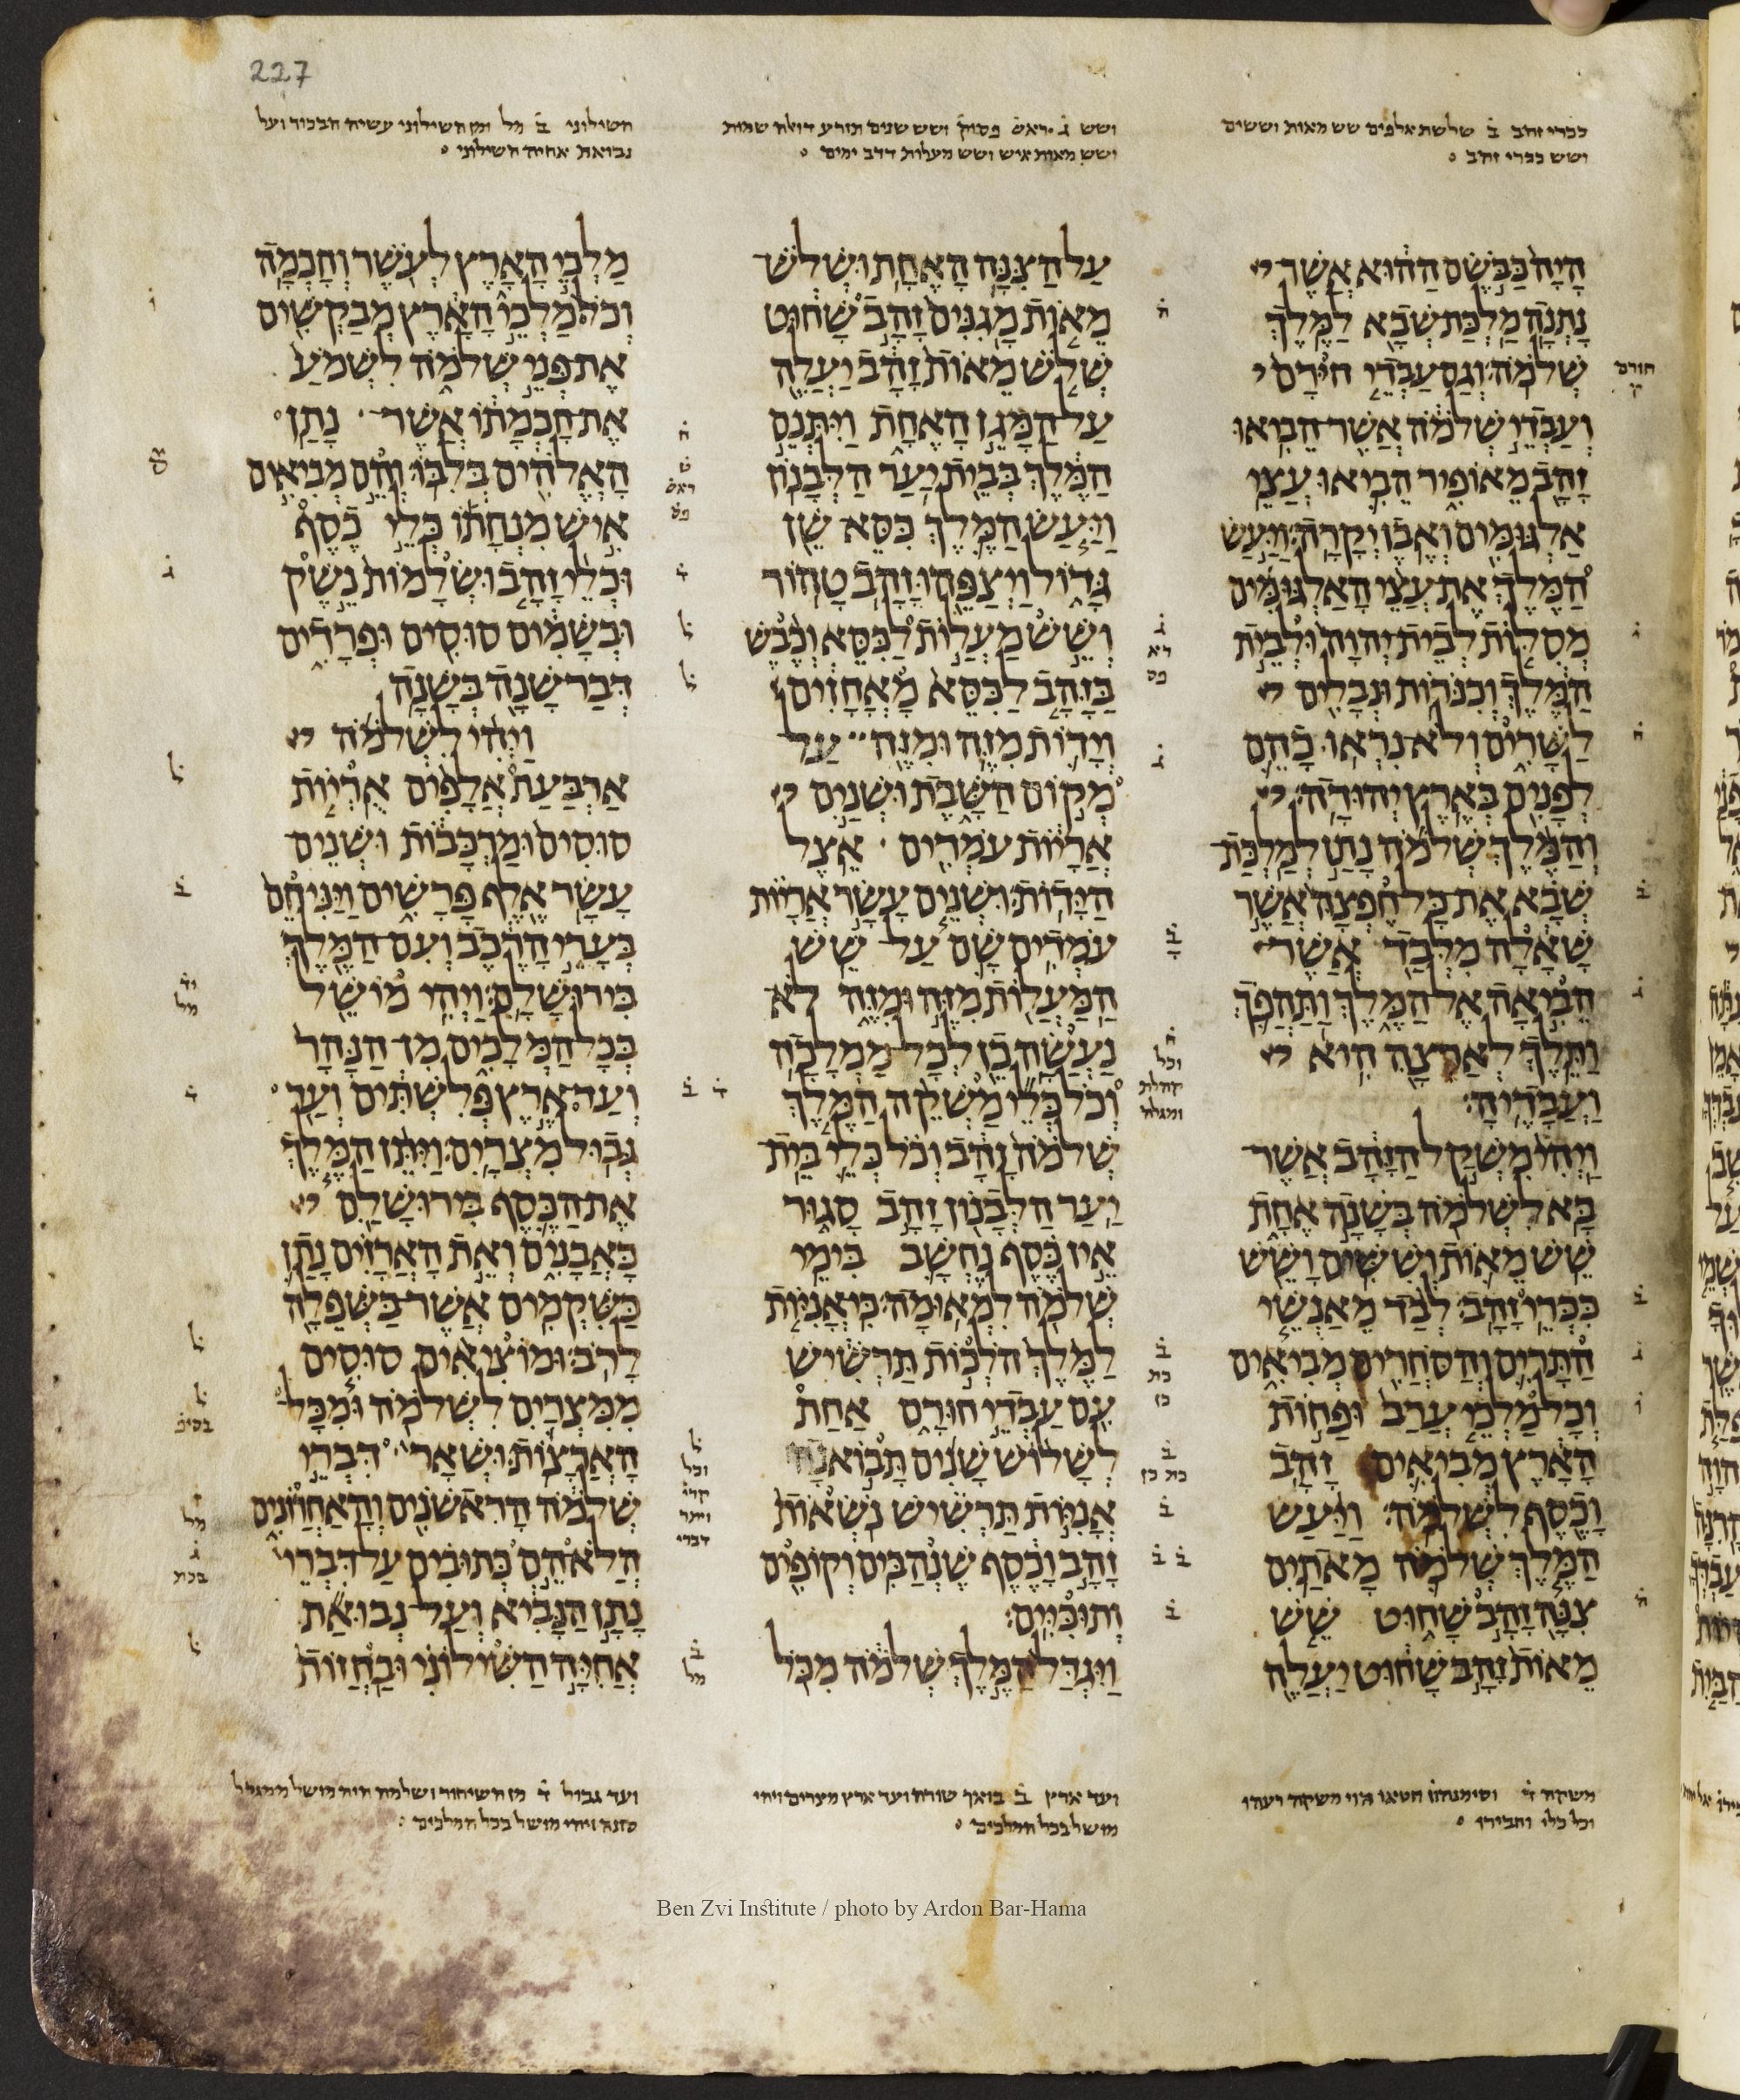 227
ככרי זהב ב֗ שלשת אלפים שש מאות וששים
ושש ככרי זהב
ושש ג֗ ראש פסוק
ושש מאות איש ושש מעלות דדב ימים
השילוני ב֗ מל ומן השילוני עשיה הבכור ועל
נבואת אחיה השילוני
הָיָה כַּבֹּשֶׂם הַהוּא אֲשֶׁר
נָתְנָה מַלְכַּת שְׁבָא לַמֶּלֶךְ
שְׁלֹמֹה׃ וְגַם עַבְדֵי חִירָם
וְעַבְדֵי שְׁלֹמֹה אֲשֶׁר הֵבִיאוּ
זָהָב מֵאוֹפִיר הֵבִיאוּ עֲצֵי
אַלְגּוּמִּים וְאֶבֶן יְקָרָה׃ וַיַּעַשׂ
הַמֶּלֶךְ אֶת עֲצֵי הָאַלְגּוּמִּים
מְסִלּוֹת לְבֵית יְהוָה וּלְבֵית
הַמֶּלֶךְ וְכִנֹּרוֹת וּנְבָלִים
לַשָּׁרִים וְלֹא נִרְאוּ כָהֵם
לְפָנִים בְּאֶרֶץ יְהוּדָה׃
וְהַמֶּלֶךְ שְׁלֹמֹה נָתַן לְמַלְכַּת
שְׁבָא אֶת כָּל חֶפְצָהּ אֲשֶׁר
שָׁאָלָה מִלְּבַד אֲשֶׁר
הֵבִיאָה אֶל הַמֶּלֶךְ וַתַּהֲפֹךְ
וַתֵּלֶךְ לְאַרְצָהּ הִיא
וַעֲבָדֶיהָ׃
וַיְהִי מִשְׁקַל הַזָּהָב אֲשֶׁר
בָּא לִשְׁלֹמֹה בְּשָׁנָה אֶחָת
שֵׁשׁ מֵאוֹת וְשִׁשִּׁים וָשֵׁשׁ
כִּכְּרֵי זָהָב׃ לְבַד מֵאַנְשֵׁי
הַתָּרִים וְהַסֹּחֲרִים מְבִיאִים
וְכָל מַלְכֵי עֲרַב וּפַחוֹת
הָאָרֶץ מְבִיאִים זָהָב
וָכֶסֶף לִשְׁלֹמֹה׃ וַיַּעַשׂ
הַמֶּלֶךְ שְׁלֹמֹה מָאתַיִם
צִנָּה זָהָב שָׁחוּט שֵׁשׁ
מֵאוֹת זָהָב שָׁחוּט יַעֲלֶה
עַל הַצִּנָּה הָאֶחָת׃ וּשְׁלֹשׁ
מֵאוֹת מָגִנִּים זָהָב שָׁחוּט
שְׁלֹשׁ מֵאוֹת זָהָב יַעֲלֶה
עַל הַמָּגֵן הָאֶחָת וַיִּתְּנֵם
הַמֶּלֶךְ בְּבֵית יַעַר הַלְּבָנוֹן׃
וַיַּעַשׂ הַמֶּלֶךְ כִּסֵּא שֵׁן
גָּדוֹל וַיְצַפֵּהוּ זָהָב טָהוֹר׃
וְשֵׁשׁ מַעֲלוֹת לַכִּסֵּא וְכֶבֶשׁ
בַּזָּהָב לַכִּסֵּא מָאֳחָזִים
וְיָדוֹת מִזֶּה וּמִזֶּה עַל
מְקוֹם הַשָּׁבֶת וּשְׁנַיִם
אֲרָיוֹת עֹמְדִים אֵצֶל
הַיָּדוֹת׃ וּשְׁנֵים עָשָׂר אֲרָיוֹת
עֹמְדִים שָׁם עַל שֵׁשׁ
הַמַּעֲלוֹת מִזֶּה וּמִזֶּה לֹא
נַעֲשָׂה כֵן לְכָל מַמְלָכָה׃
וְכֹל כְּלֵי מַשְׁקֵה הַמֶּלֶךְ
שְׁלֹמֹה זָהָב וְכֹל כְּלֵי בֵּית
יַעַר הַלְּבָנוֹן זָהָב סָגוּר
אֵין כֶּסֶף נֶחְשָׁב בִּימֵי
שְׁלֹמֹה לִמְאוּמָה׃ כִּי אֳנִיּוֹת
לַמֶּלֶךְ הֹלְכוֹת תַּרְשִׁישׁ
עִם עַבְדֵי חוּרָם אַחַת
לְשָׁלוֹשׁ שָׁנִים תָּבוֹאנָה
אֳנִיּוֹת תַּרְשִׁישׁ נֹשְׂאוֹת
זָהָב וָכֶסֶף שֶׁנְהַבִּים וְקוֹפִים
וְתוּכִּיִּים׃
וַיִּגְדַּל הַמֶּלֶךְ שְׁלֹמֹה מִכֹּל
מַלְכֵי הָאָרֶץ לְעֹשֶׁר וְחָכְמָה׃
וְכֹל מַלְכֵי הָאָרֶץ מְבַקְשִׁים
אֶת פְּנֵי שְׁלֹמֹה לִשְׁמֹעַ
אֶת חָכְמָתוֹ אֲשֶׁר נָתַן
הָאֱלֹהִים בְּלִבּוֹ׃ וְהֵם מְבִיאִים
אִישׁ מִנְחָתוֹ כְּלֵי כֶסֶף
וּכְלֵי זָהָב וּשְׂלָמוֹת נֵשֶׁק
וּבְשָׂמִים סוּסִים וּפְרָדִים
דְּבַר שָׁנָה בְּשָׁנָה׃
וַיְהִי לִשְׁלֹמֹה
אַרְבַּעַת אֲלָפִים אֻרְיוֹת
סוּסִים וּמַרְכָּבוֹת וּשְׁנֵים
עָשָׂר אֶלֶף פָּרָשִׁים וַיַּנִּיחֵם
בְּעָרֵי הָרֶכֶב וְעִם הַמֶּלֶךְ
בִּירוּשָׁלִָם׃ וַיְהִי מוֹשֵׁל
בְּכָל הַמְּלָכִים מִן הַנָּהָר
וְעַד אֶרֶץ פְּלִשְׁתִּים וְעַד
גְּבוּל מִצְרָיִם׃ וַיִּתֵּן הַמֶּלֶךְ
אֶת הַכֶּסֶף בִּירוּשָׁלִַם
כָּאֲבָנִים וְאֵת הָאֲרָזִים נָתַן
כַּשִּׁקְמִים אֲשֶׁר בַּשְּׁפֵלָה
לָרֹב׃ וּמוֹצִיאִים סוּסִים
מִמִּצְרַיִם לִשְׁלֹמֹה וּמִכָּל
הָאֲרָצוֹת׃ וּשְׁאָר דִּבְרֵי
שְׁלֹמֹה הָרִאשֹׁנִים וְהָאַחֲרוֹנִים
הֲלֹא הֵם כְּתוּבִים עַל דִּבְרֵי
נָתָן הַנָּבִיא וְעַל נְבוּאַת
אֲחִיָּה הַשִּׁילוֹנִי וּבַחֲזוֹת
חורם
ק
משקה ד֗ וסימנהון חטאו הוי משקה רעהו
וכל כלי וחבירו
ועד ארץ ב֗ בואך שורה ועד ארץ מצרים ויהי
מושל בכל המלכים
ועד גבול ד֗ מן השיחור ושלמה היה מושל
ויהי מושל בכל המלכים
Ben Zvi Institute / photo by Ardon Bar-Hama